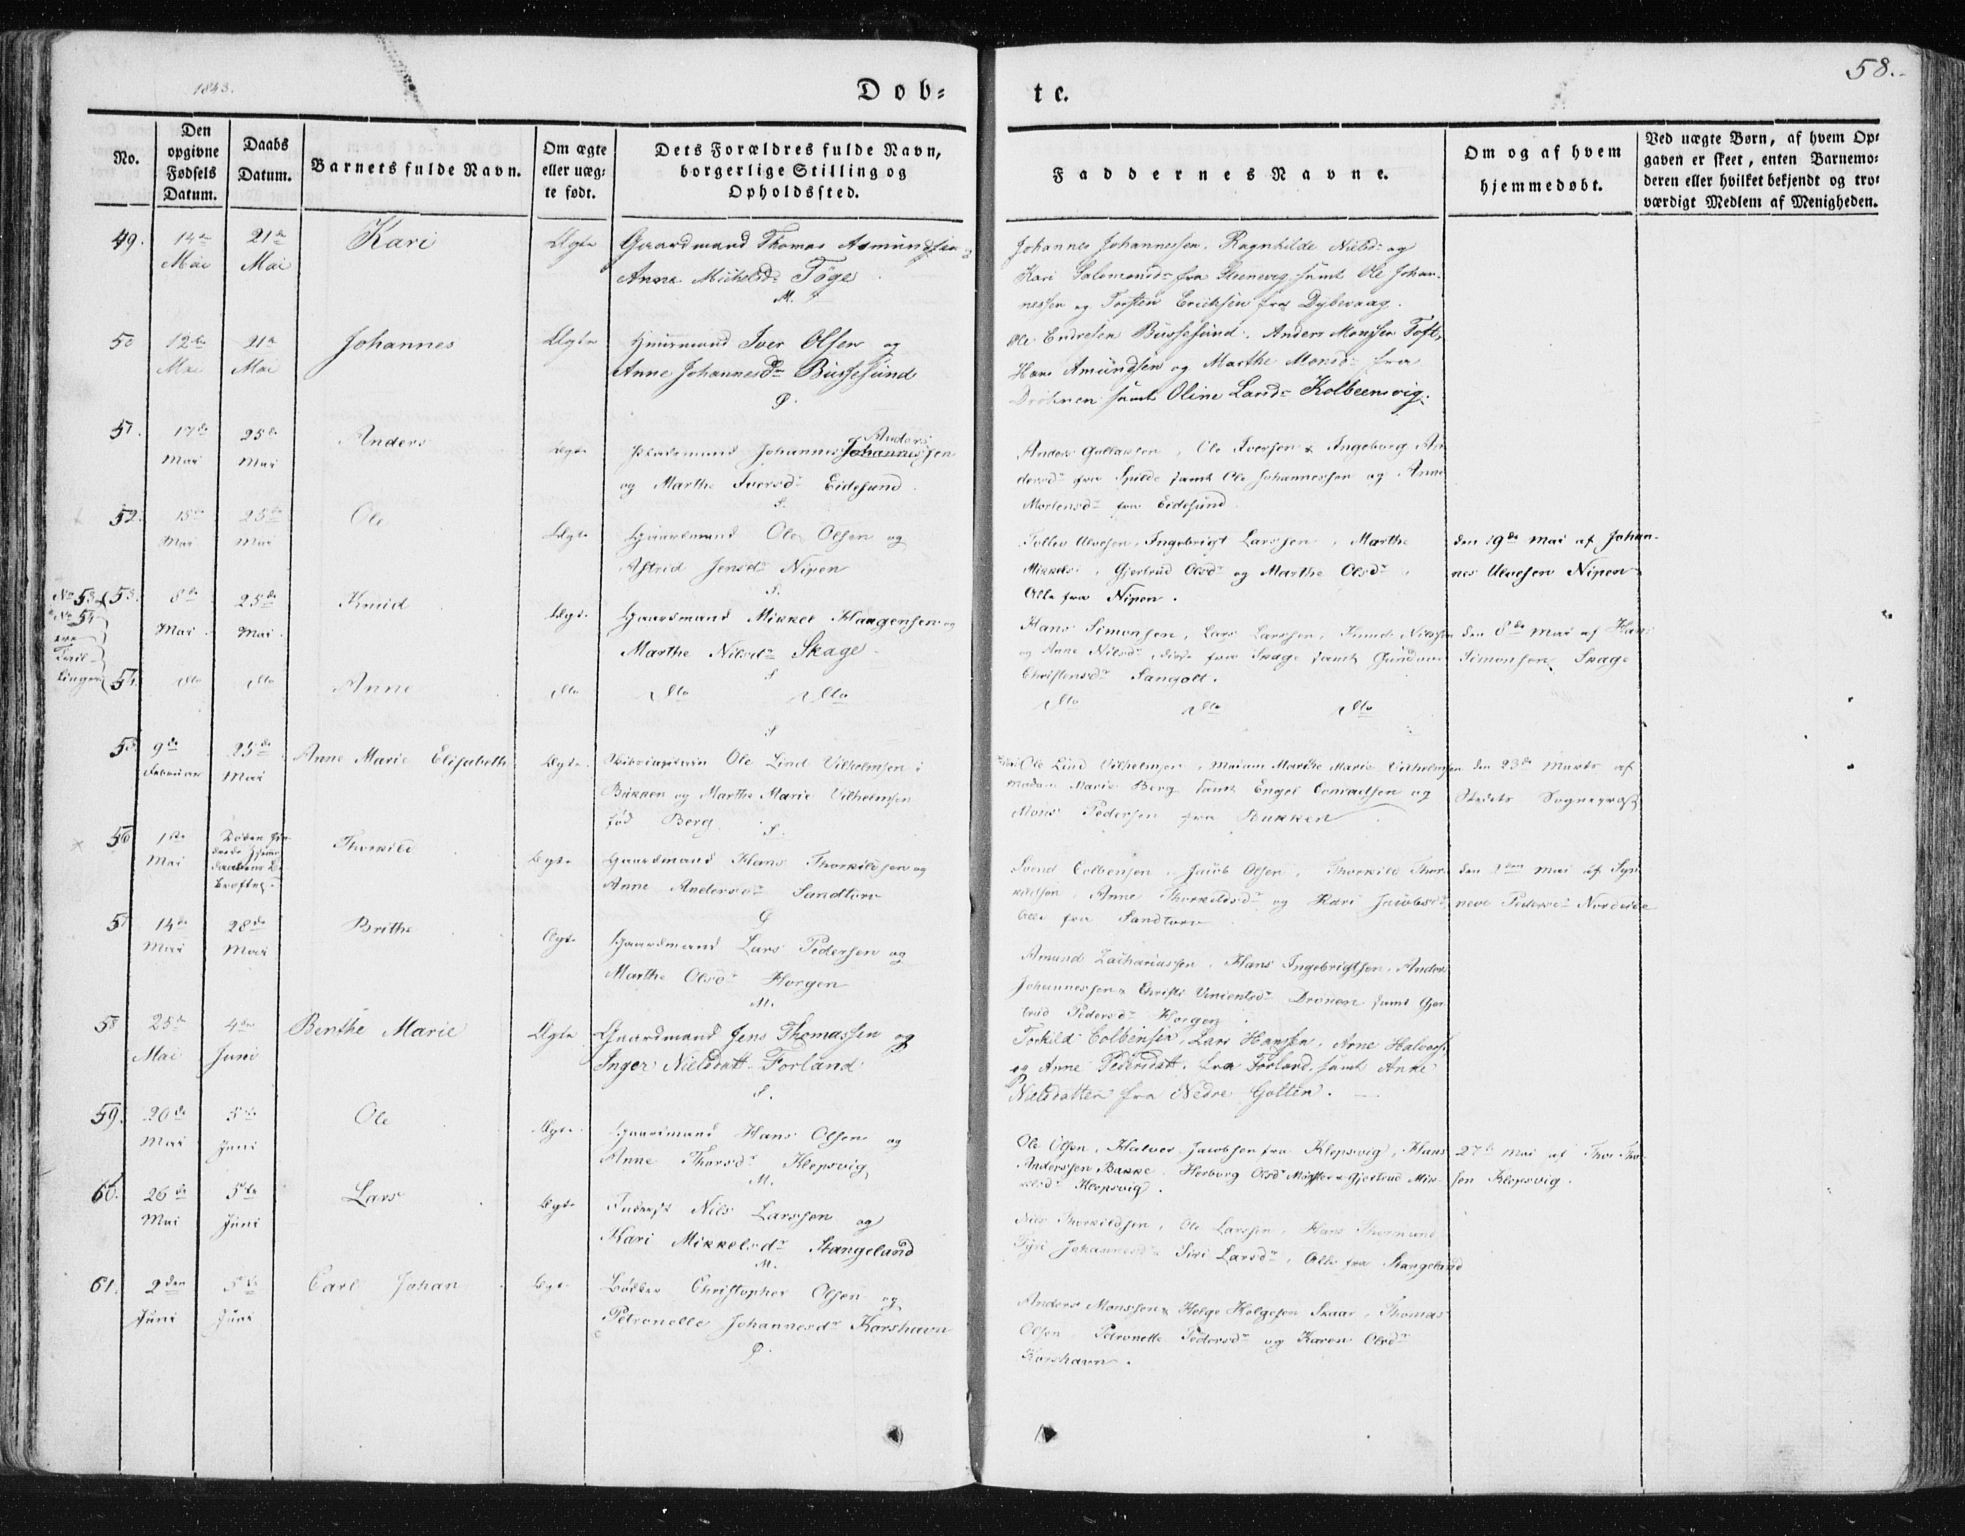 1843.
Dob=
te.
58.
No.
Den opgivne Fødsels Datum.
Daabs Datum.
Barnets fulde Navn.
Om ægte eller uæg= te født.
Dets Forældres fulde Navn, borgerlige Stilling og Opholdssted.
Faddernes Navne.
Om og af hvem hjemmedøbt.
Ved uægte Børn, af hvem Op= gaven er skeet, enten Barnemo= deren eller hvilket bekjendt og tro= værdigt Medlem af Menigheden.
49. 14de 21de Kari Ægte Gaardmand Thomas Asmundsen
Mai Mai Anna Mickelsdr Töge
M.
Johannes Johannessen. Ragnhilde Nielsdr og
Kari Salomonsdr fra Steensvig samt Ole Johan-
nessen og Torsten Erichsen fra Dybevaag.
50 12te 21de Johannes Ægte Huusmand Iver Olsen og
Mai Mai Anne Johannesdr Bussesund
Ole Endresen Bussesund. Anders Monsen Toft,
Hans Amundsen og Marthe Monsdr fra
Drönen samt Oline Larsdr Kolbeensvig.
51. 17de 25de Anders Ægte Johannes Johannessen Anders
Mai Mai og Marthe Iversdr Eidesund.
S.
Anders Gullaksen, Ole Iversen & Ingeborg An-
dersdr fra Spilde samt Ole Johannessen og Anne
Mortensdr fra Eidesund.
52. 18de 25de Ole Ægte Gaardmand Ole Olsen og
Mai Mai Astrid Jensdr Nipen
S.
Tollev Ulvesen, Ingebrigt Larssen, Marthe
Mikkels, Gjertrud Olsdr og Marthe Olsdr
Alle fra Nipen.
den 19de Mai af Johan-
nes Ulvesen Nipen
No 53
& No 54
ere
Tvil-
linger
53. 8de 25de Knud Ægte Gaardmand Mikkel Haagensen og
Mai Mai Marthe Nilsdr Skage
S
Hans Simonsen, Lars Larssen, Knud Nilssen
og Anne Nilsdr, disse fra Skage samt Gundvor
Christensdr Sangolt.
den 8de Mai af Hans
Simonsen Skage
54. dto dto Anne dto dto dto
S
dto dto dto
55 9de 25de Anne Marie Elisabeth Ægte Skibscapitain Ole Lind Vilhelmsen i
Februar Mai Bakken og Marthe Marie Vilhelmsen
fød Berg
S.
Ole Lind Vilhelmsen, Madam Marthe Marie Vilhelmsen
Madam Marie Berg samt Engel Conradsen og
Mons Pedersen fra Bakken
den 23de Marts af
Stedets Sognepræst
56 1ste Thorkild Ægte Gaardmand Hans Thorkildsen og
Mai Anne Andersdr Sandtorv
Svend Colbensen, Jacob Olsen, Thorkild Thor-
kildsen, Anne Thorkildsdr og Kari Jacobsdr
Alle fra Sandtorv
Mai af Syn-
neve Pedersdr Nordeide
57 14de 28de Brithe Ægte Gaardmand Lars Pedersen og
Mai Mai Marthe Olsdr Horgen
M.
Amund Zachariassen, Hans Ingebrigtsen, Anders
Johannessen & Christi Vincentsdr Dronen samt Gjer-
trud Pedersdr Horgen.
58 25de 4de Benthe Marie Ægte Gaardmand Jens Thomassen og
Mai Juni Inger Nielsdatt. Forland
S.
Torkild Colbensen, Lars Hansen, Arne Halvors.
og Anne Pedersdatt. fra Forland, samt Anne
Nielsdatter fra Nedre Golten.
59. 20de 5te Ole Ægte Gaardmand Hans Olsen og
Mai Juni Anne Thorsdr Klepsvig
M.
Ole Olsen, Halvor Jacobsen fra Klepsvig, Hans
Anderssen Bakke, Herborg Olsdr & Gjertrud Mik-
kelsdr Klepsvig.
27de Mai af Thor Tho-
sen Klepsvig.
60. 26de 5te Lars Ægte Inderst Nils Larssen og
Mai Juni Kari Mikkelsdr Stangeland
M.
Nils Thorkildsen, Ole Larssen, Hans
Johannesdr Siri Larsdr, Alle fra Stangeland
61. 2den 5te Carl Johan Ægte Bødker Christopher Olsen og
Juni Juni Petronelle Johannesdr Korshavn
Anders Monssen & Helge Helgesen Skaar, Thomas
Olsen, Petronelle Pedersdr og Karen Olsdr
Korshavn.